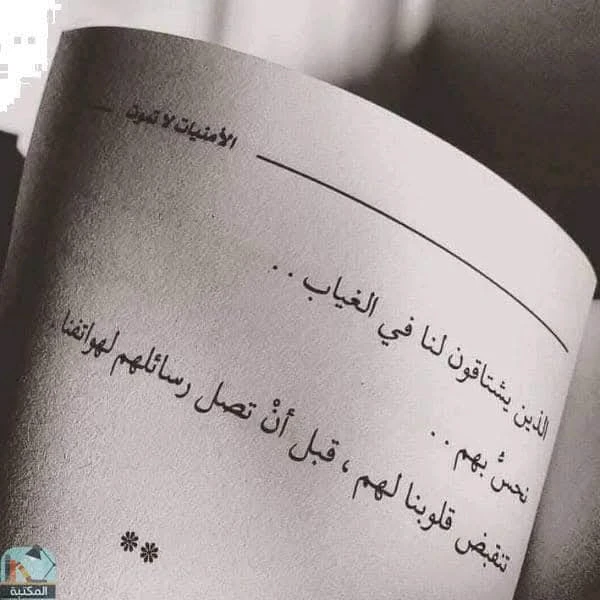 الأمنيات لا تموت
الذين يشتاقون لنا في الغياب . .
نحسُّ بهم . .
تنقبض قلوبنا لهم ، قبل أنْ تصل رسائلهم لهواتفنا .
**
المكتبة